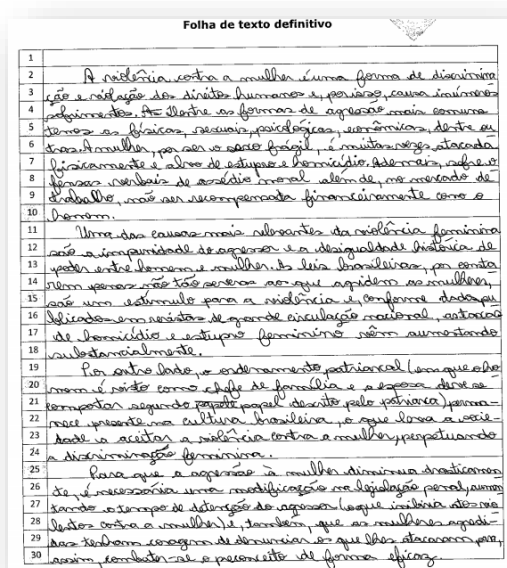 Folha de texto definitivo
1
2 A violência contra a mulher é uma forma de discrimina
3 ção e violação dos direitos humanos e, por isso, causa inúmeros
4 sofrimentos. Dentre as formas de agressão mais comuns
5 temos as físicas, sexuais, psicológicas, econômicas, dentre ou
6 tras. A mulher, por ser o sexo frágil, é muitas vezes atacada
7 fisicamente e alvo de estupro e homicídio. Ademais, sofre o
8 fensas verbais de assédio moral além de, no mercado de
9 trabalho, não ser recompensada financeiramente como o
10 homem.
11 Uma das causas mais relevantes da violência feminina
12 são a impunidade do agressor e a desigualdade histórica de
13 poder entre homem e mulher. As leis brasileiras, por conte
14 rem penas não tão severas aos que agridem as mulheres,
15 são um estímulo para a violência e, conforme dados pu
16 blicados em revistas de grande circulação nacional, os
17 de homicídio e estupro feminino vêm aumentando
18 substancialmente.
19 Por outro lado, o ordenamento patriarcal (em que o ho
20 mem é visto como chefe de família e a esposa deve se
21 comportar segundo papel descrito pelo patriarca) perma
22 nece presente na cultura brasileira, o que leva a socie
23 dade a aceitar a violência contra a mulher, perpetuando
24 a discriminação feminina.
25 Para que a agressão à mulher diminua drasticamen
26 te, é necessária uma modificação na legislação penal, aumen
27 tando o tempo de detenção do agressor (o que inibiria atos vio
28 lentos contra a mulher) e, também, que as mulheres agredi-
29 das tenham coragem de denunciar os que lhes atacaram para,
30 assim, combater-se o preconceito de forma eficaz.